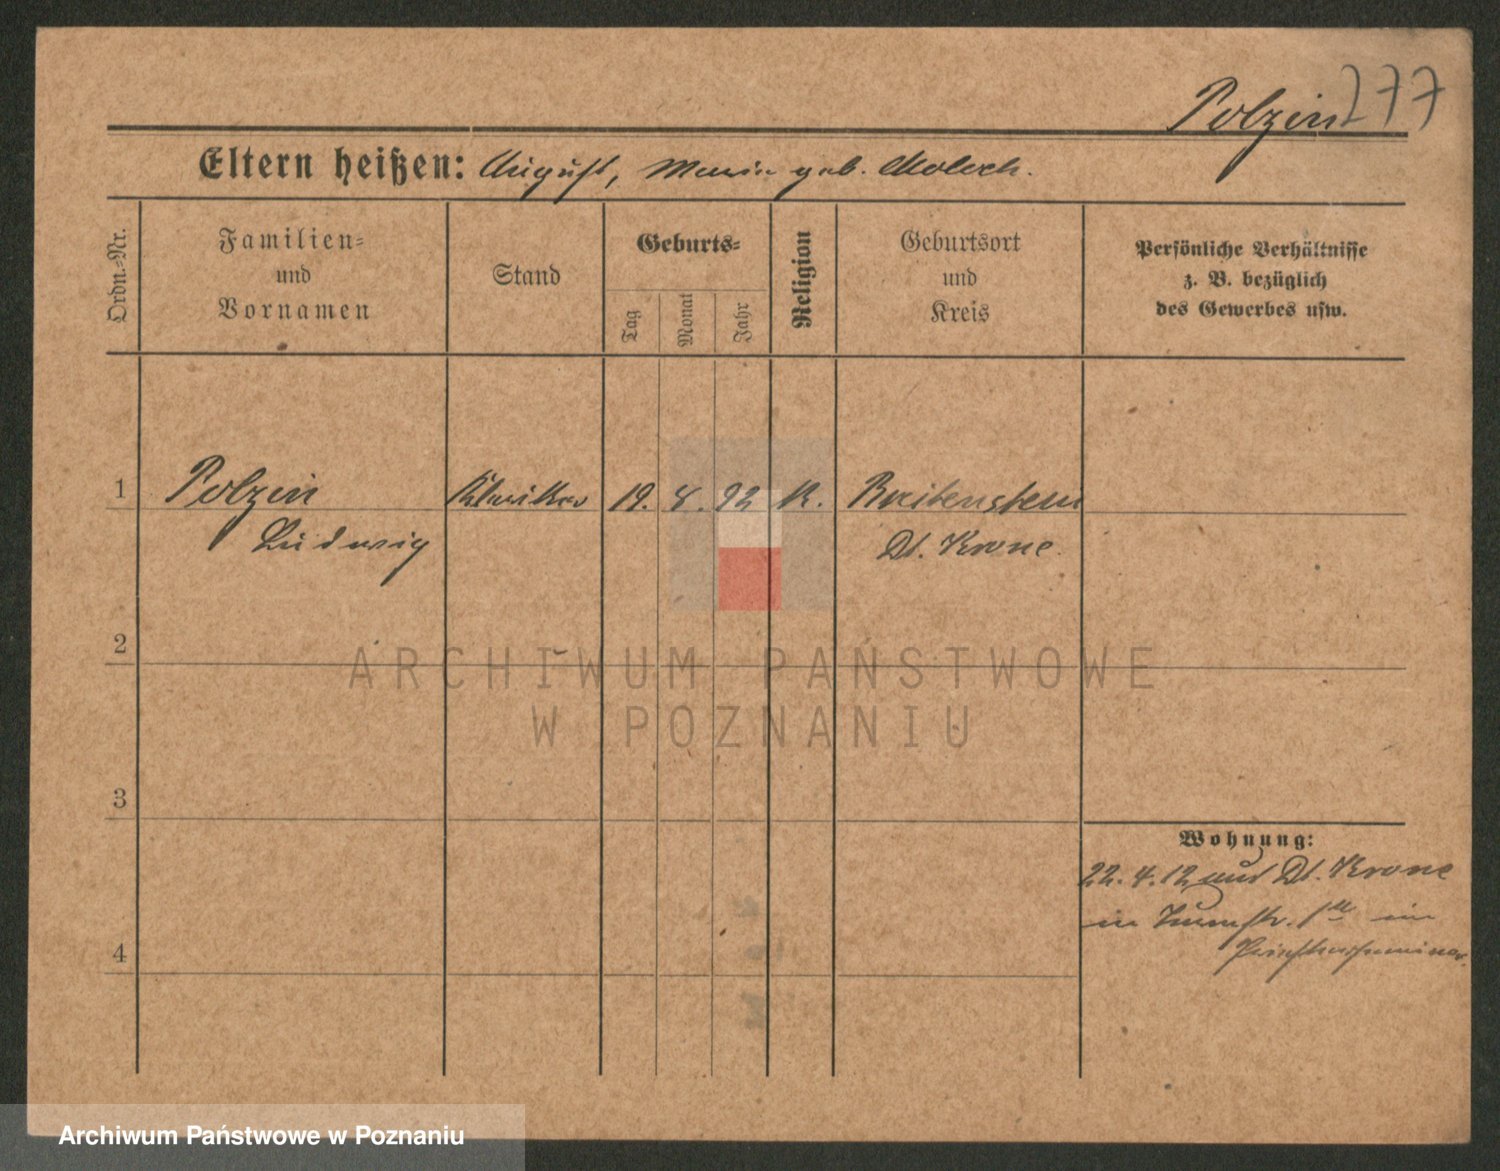 Polzin 277
Eltern heißen: August, Maria geb. Moloch.
Ordn.-Nr.
Familien-
und
Vornamen
Stand
Geburts-
Tag
Monat
Jahr
Religion
Geburtsort
und
Kreis
Persönliche Verhältnisse
z. B. bezüglich
des Gewerbes usw.
1 Polzin Kleriker 19. 8. 92 K. Breitenstein
Ludwig Dt. Krone.
2
3
4
Wohnung:
22.4.12 aus Dt. Krone
in im
Priesterseminar.
ARCHIWUM PAŃSTWOWE
W POZNANIU
Archiwum Państwowe w Poznaniu